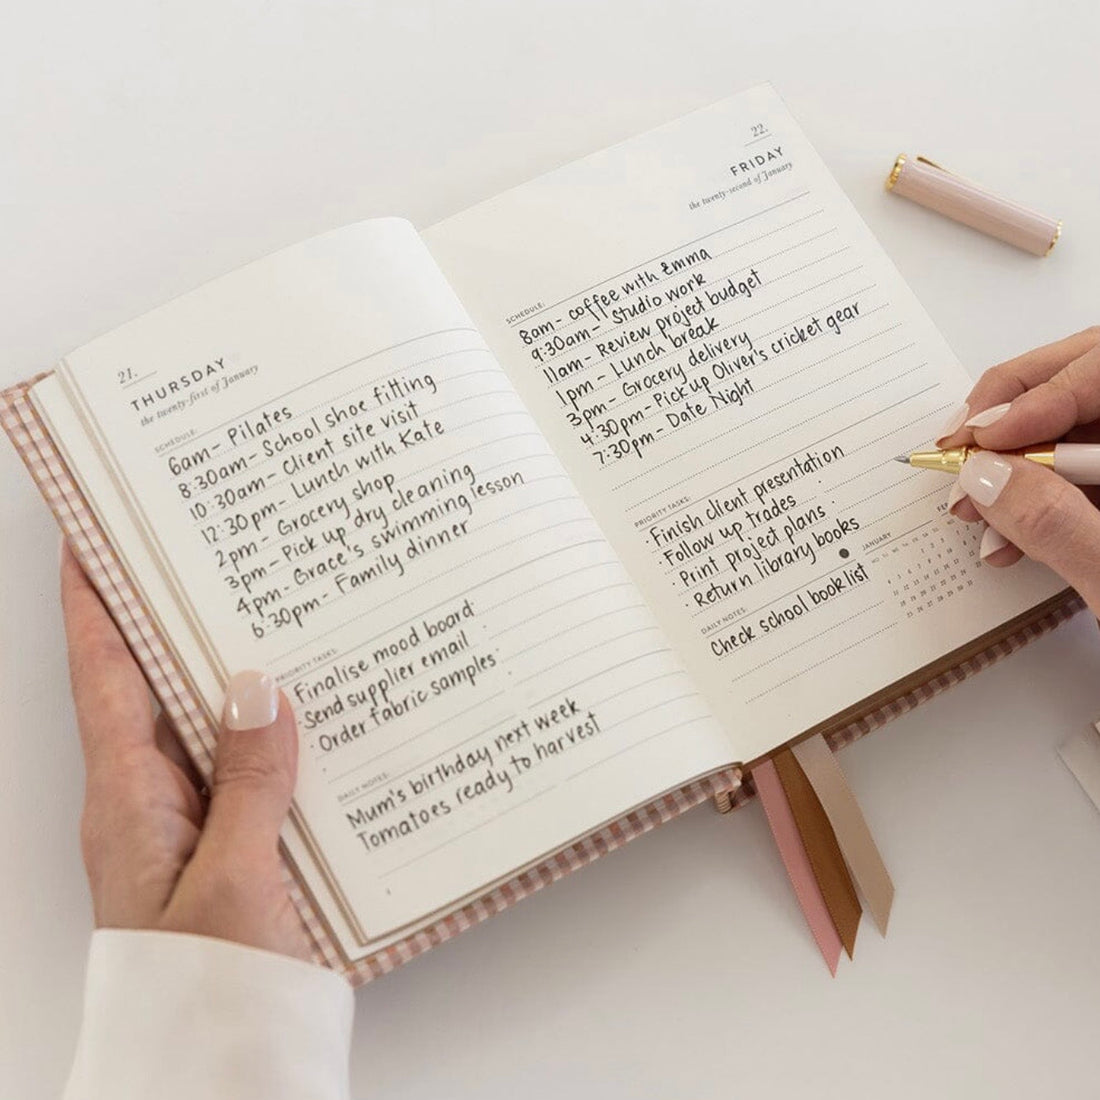 21.
THURSDAY
the twenty-first of January
SCHEDULE:
6am - Pilates
8:30am - School shoe fitting
10:30am - Client site visit
12:30pm - Lunch with Kate
2pm - Grocery shop
3pm - Pick up dry cleaning
4pm - Grace's swimming lesson
6:30pm - Family dinner
PRIORITY TASKS:
Finalise mood board
Send supplier email
Order fabric samples
DAILY NOTES:
Mum's birthday next week
Tomatoes ready to harvest
22.
FRIDAY
the twenty-second of January
SCHEDULE:
8am - coffee with Emma
9:30am - Studio work
11am - Review project budget
1pm - Lunch break
3pm - Grocery delivery
4:30pm - Pick up Oliver's cricket gear
7:30pm - Date Night
PRIORITY TASKS:
Finish client presentation
Follow up trades
Print project plans
Return library books
DAILY NOTES:
Check school book list
JANUARY